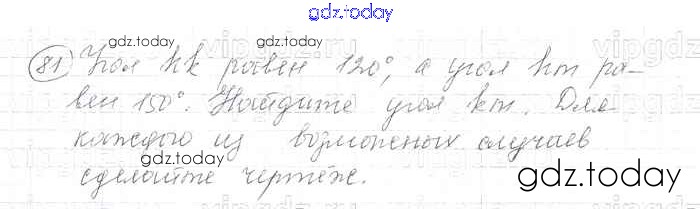 gdz.today
gdz.today
81) Угол hk равен 120°, а угол hm ра-
вен 150°. Найдите угол km. Для
каждого из возможных случаев
gdz.today
сделайте чертёж.
gdz.today